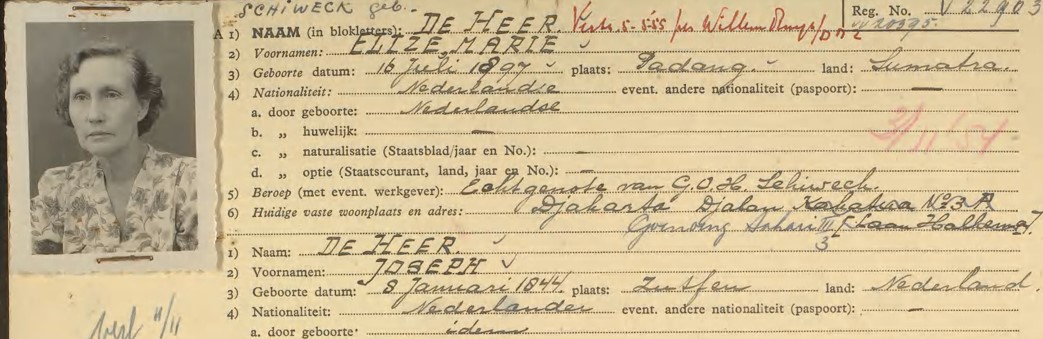 SCHIWECK geb. Reg. No. V 22903
A 1) NAAM (in blokletters): DE HEER. Vertr. 5-5-55 per Willem Ruys
2) Voornamen: ELIZE MARIE
3) Geboorte datum: 16 Juli 1897 plaats: Padang. land: Sumatra.
4) Nationaliteit: Nederlandse event. andere nationaliteit (paspoort): —
a. door geboorte: Nederlandse
b. „ huwelijk: —
c. „ naturalisatie (Staatsblad/jaar en No.): —
d. „ optie (Staatscourant, land, jaar en No.): —
5) Beroep (met event. werkgever): Echtgenote van G.O.H. Schiweck.
6) Huidige vaste woonplaats en adres: Djakarta, Djalan No 3 A
Goenoeng Sahari III Laan
3
1) Naam: DE HEER.
2) Voornamen: JOSEPH
3) Geboorte datum: 8 Januari 1844. plaats: Zutfen land: Nederland.
4) Nationaliteit: Nederlander event. andere nationaliteit (paspoort): —
a. door geboorte: idem